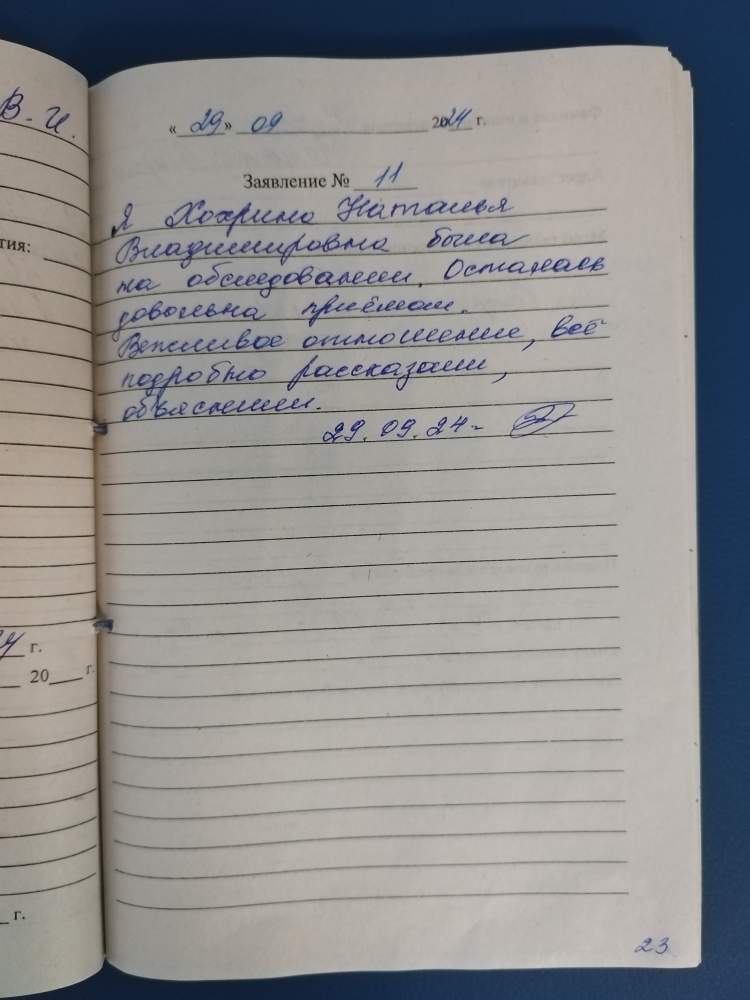 В. И.
тия:
г.
20 г.
г.
« 29 » 09 2024 г.
Заявление № 11
Я Хохрина Наталья
Владимировна была
на обследовании. Осталась
довольна приёмом.
Вежливое отношение, всё
подробно рассказали,
объяснили.
29.09.24-
23